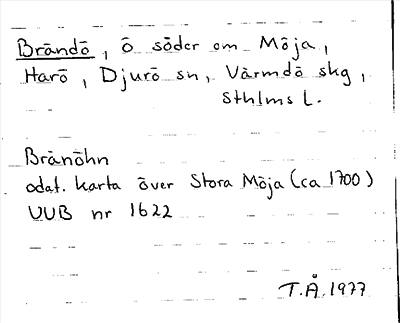 Brändö, ö söder om Möja,
Harö, Djurö sn, Värmdö skg,
Sthlms L.
Bränöhn
odat. karta över Stora Möja (ca 1700)
UUB nr 1622
T.Å. 1977